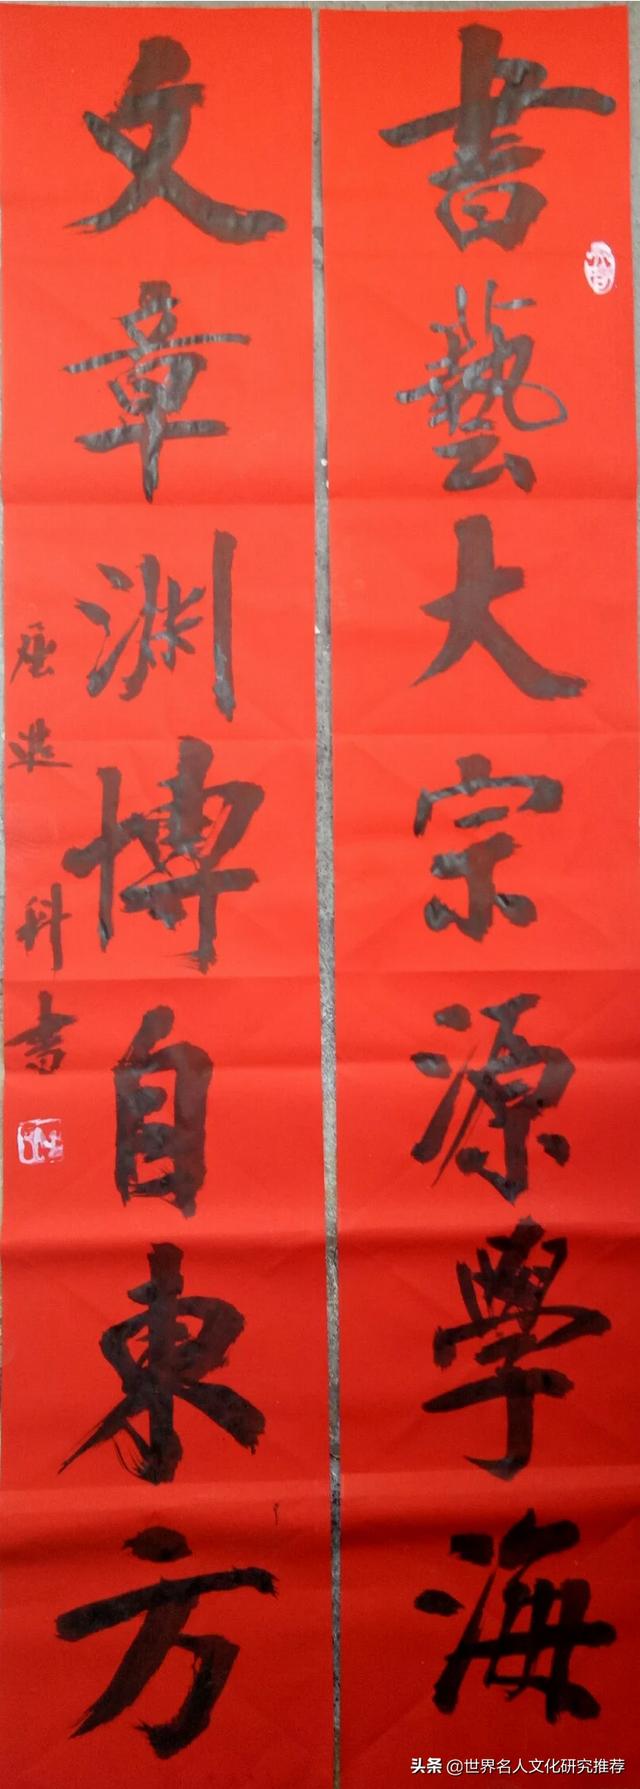 書藝大宗源學海
文章渊博自東方
科書
头条 @世界名人文化研究推荐